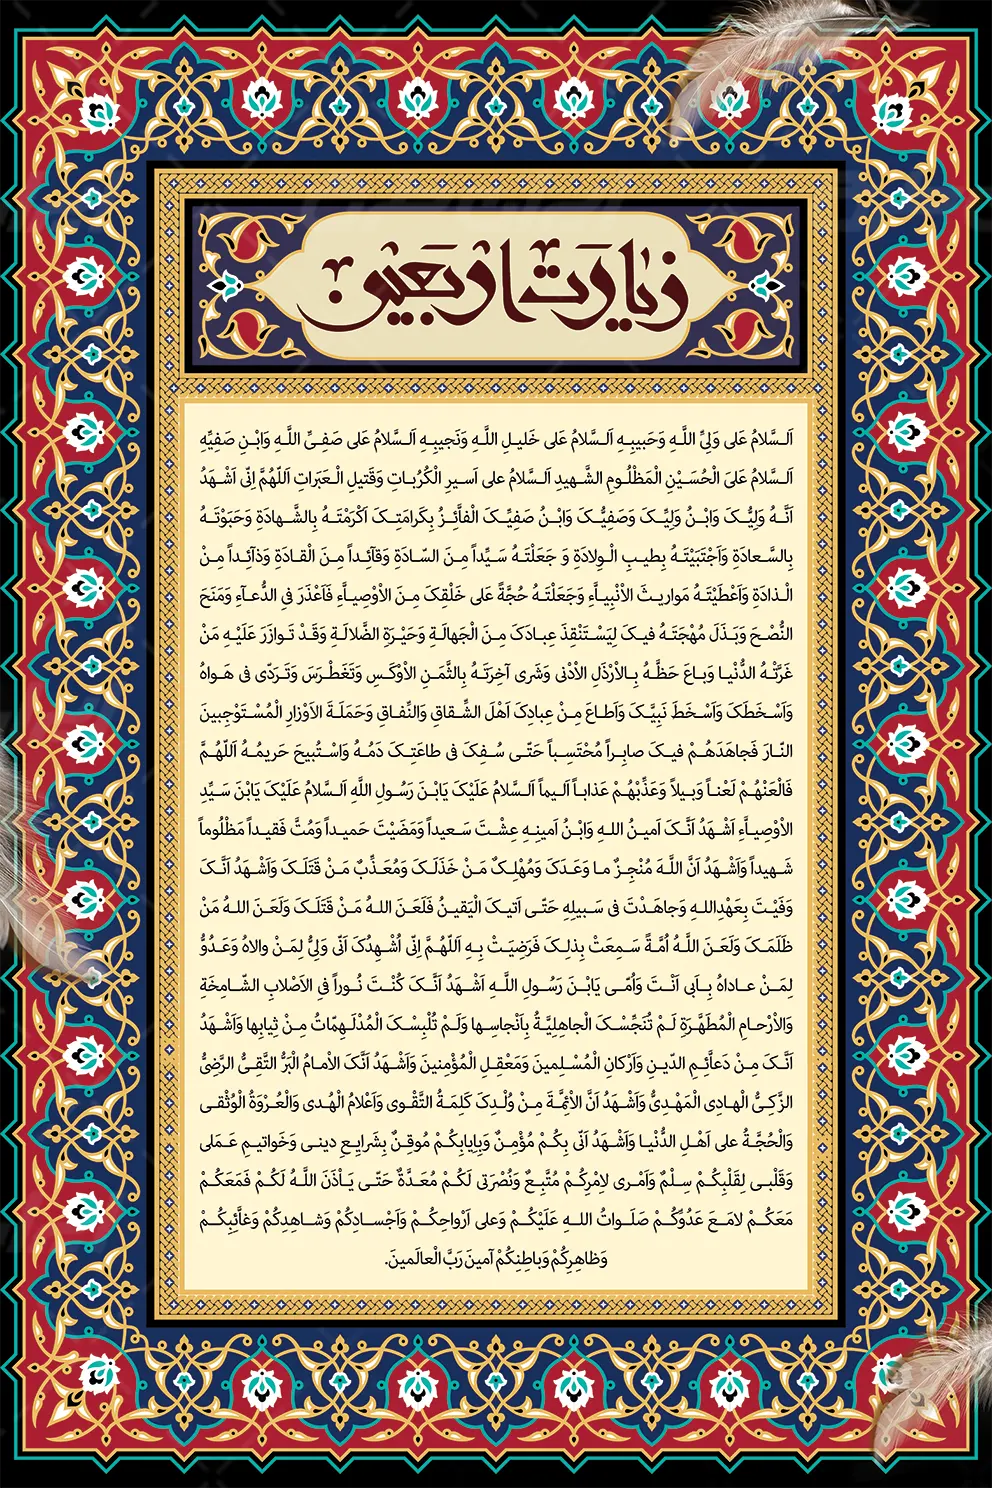 زیارت اربعین
اَلسَّلامُ عَلی وَلِیِّ اللَّهِ وَحَبیبِهِ اَلسَّلامُ عَلی خَلیلِ اللَّهِ وَنَجیبِهِ اَلسَّلامُ عَلی صَفِیِّ اللَّهِ وَابْنِ صَفِیِّهِ
اَلسَّلامُ عَلیَ الْحُسَیْنِ الْمَظْلُومِ الشَّهیدِ اَلسَّلامُ علی اَسیرِ الْکُرُباتِ وَقَتیلِ الْعَبَراتِ اَللّهُمَّ اِنّی اَشْهَدُ
اَنَّهُ وَلِیُّکَ وَابْنُ وَلِیِّکَ وَصَفِیُّکَ وَابْنُ صَفِیِّکَ الْفاَّئِزُ بِکَرامَتِکَ اَکْرَمْتَهُ بِالشَّهادَةِ وَحَبَوْتَهُ
بِالسَّعادَةِ وَاَجْتَبَیْتَهُ بِطیبِ الْوِلادَةِ وَ جَعَلْتَهُ سَیِّداً مِنَ السّادَةِ وَقآئِداً مِنَ الْقادَةِ وَذآئِداً مِنْ
الْذادَةِ وَاَعْطَیْتَهُ مَواریثَ الاَْنْبِیاَّءِ وَجَعَلْتَهُ حُجَّةً عَلی خَلْقِکَ مِنَ الاَْوْصِیاَّءِ فَاَعْذَرَ فیِ الدُّعآءِ وَمَنَحَ
النُّصْحَ وَبَذَلَ مُهْجَتَهُ فیکَ لِیَسْتَنْقِذَ عِبادَکَ مِنَ الْجَهالَةِ وَحَیْرَةِ الضَّلالَةِ وَقَدْ تَوازَرَ عَلَیْهِ مَنْ
غَرَّتْهُ الدُّنْیا وَباعَ حَظَّهُ بِالاَْرْذَلِ الاَْدْنی وَشَری آخِرَتَهُ بِالثَّمَنِ الاَْوْکَسِ وَتَغَطْرَسَ وَتَرَدّی فی هَواهُ
وَاَسْخَطَکَ وَاَسْخَطَ نَبِیَّکَ وَاَطاعَ مِنْ عِبادِکَ اَهْلَ الشِّقاقِ وَالنِّفاقِ وَحَمَلَةَ الاَْوْزارِ الْمُسْتَوْجِبینَ
النّارَ فَجاهَدَهُمْ فیکَ صابِراً مُحْتَسِباً حَتّی سُفِکَ فی طاعَتِکَ دَمُهُ وَاسْتُبیحَ حَریمُهُ اَللّهُمَّ
فَالْعَنْهُمْ لَعْناً وَبیلاً وَعَذِّبْهُمْ عَذاباً اَلیماً اَلسَّلامُ عَلَیْکَ یَابْنَ رَسُولِ اللَّهِ اَلسَّلامُ عَلَیْکَ یَابْنَ سَیِّدِ
الاَْوْصِیاَّءِ اَشْهَدُ اَنَّکَ اَمینُ اللهِ وَابْنُ اَمینِهِ عِشْتَ سَعیداً وَمَضَیْتَ حَمیداً وَمُتَّ فَقیداً مَظْلُوماً
شَهیداً وَاَشْهَدُ اَنَّ اللَّهَ مُنْجِزٌ ما وَعَدَکَ وَمُهْلِکٌ مَنْ خَذَلَکَ وَمُعَذِّبٌ مَنْ قَتَلَکَ وَاَشْهَدُ اَنَّکَ
وَفَیْتَ بِعَهْدِاللهِ وَجاهَدْتَ فی سَبیلِهِ حَتّی اَتیکَ الْیَقینُ فَلَعَنَ اللهُ مَنْ قَتَلَکَ وَلَعَنَ اللهُ مَنْ
ظَلَمَکَ وَلَعَنَ اللَّهُ اُمَّةً سَمِعَتْ بِذلِکَ فَرَضِیَتْ بِهِ اَللّهُمَّ اِنّی اُشْهِدُکَ اَنّی وَلِیٌّ لِمَنْ والاهُ وَعَدُوٌّ
لِمَنْ عاداهُ بِاَبی اَنْتَ وَاُمّی یَابْنَ رَسُولِ اللَّهِ اَشْهَدُ اَنَّکَ کُنْتَ نُوراً فیِ الاَْصْلابِ الشّامِخَةِ
وَالاَْرْحامِ الْمُطَهَّرَةِ لَمْ تُنَجِّسْکَ الْجاهِلِیَّةُ بِاَنْجاسِها وَلَمْ تُلْبِسْکَ الْمُدْلَهِمّاتُ مِنْ ثِیابِها وَاَشْهَدُ
اَنَّکَ مِنْ دَعاَّئِمِ الدّینِ وَاَرْکانِ الْمُسْلِمینَ وَمَعْقِلِ الْمُؤْمِنینَ وَاَشْهَدُ اَنَّکَ الاْمامُ الْبَرُّ التَّقِیُّ الرَّضِیُّ
الزَّکِیُّ الْهادِی الْمَهْدِیُّ وَاَشْهَدُ اَنَّ الاَْئِمَّةَ مِنْ وُلْدِکَ کَلِمَةُ التَّقْوی وَاَعْلامُ الْهُدی وَالْعُرْوَةُ الْوُثْقی
وَالْحُجَّةُ علی اَهْلِ الدُّنْیا وَاَشْهَدُ اَنّی بِکُمْ مُؤْمِنٌ وَبِاِیابِکُمْ مُوقِنٌ بِشَرایِعِ دینی وَخَواتیمِ عَمَلی
وَقَلْبی لِقَلْبِکُمْ سِلْمٌ وَاَمْری لاَِمْرِکُمْ مُتَّبِعٌ وَنُصْرَتی لَکُمْ مُعَدَّةٌ حَتّی یَاْذَنَ اللَّهُ لَکُمْ فَمَعَکُمْ
مَعَکُمْ لامَعَ عَدُوِّکُمْ صَلَواتُ اللهِ عَلَیْکُمْ وَعلی اَرْواحِکُمْ وَاَجْسادِکُمْ وَشاهِدِکُمْ وَغاَّئِبِکُمْ
وَظاهِرِکُمْ وَباطِنِکُمْ آمینَ رَبَّ الْعالَمینَ.